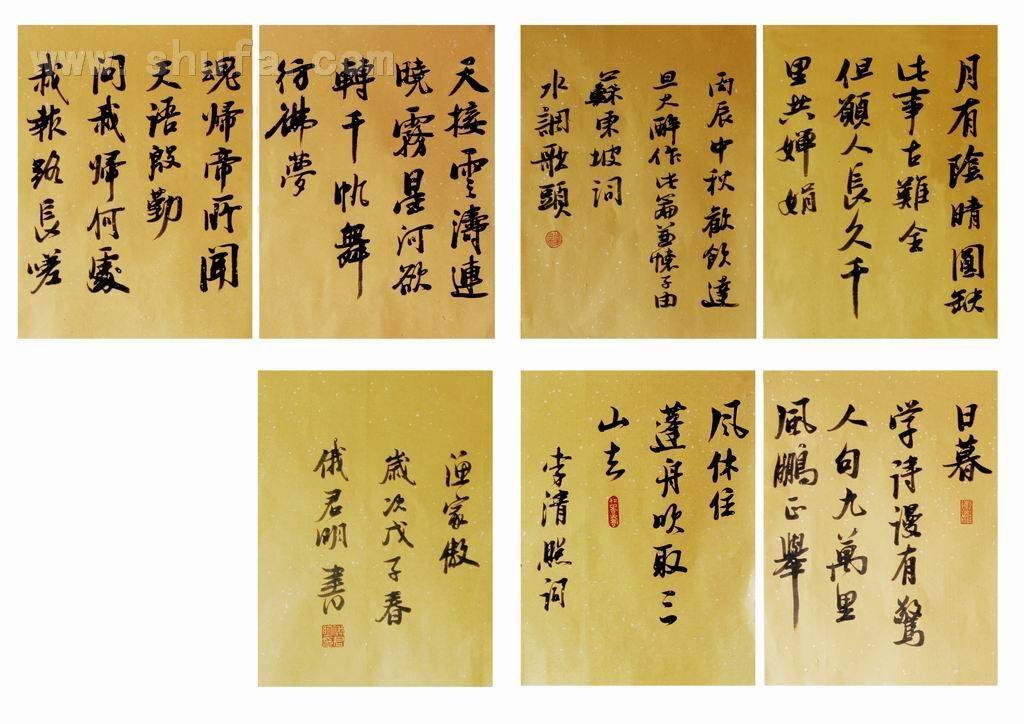 月有陰晴圓缺
此事古難全
但願人長久千
里共嬋娟
丙辰中秋歡飲達
旦大醉作此篇兼懷子由
蘇東坡詞
水調歌頭
天接雲濤連
曉霧星河欲
轉千帆舞
彷彿夢
魂歸帝所聞
天語殷勤
問我歸何處
我報路長嗟
日暮
学诗谩有驚
人句九萬里
風鵬正舉
风休住
蓬舟吹取三
山去
李清照词
渔家傲
歲次戊子春
俄君明書
www.shufa.com